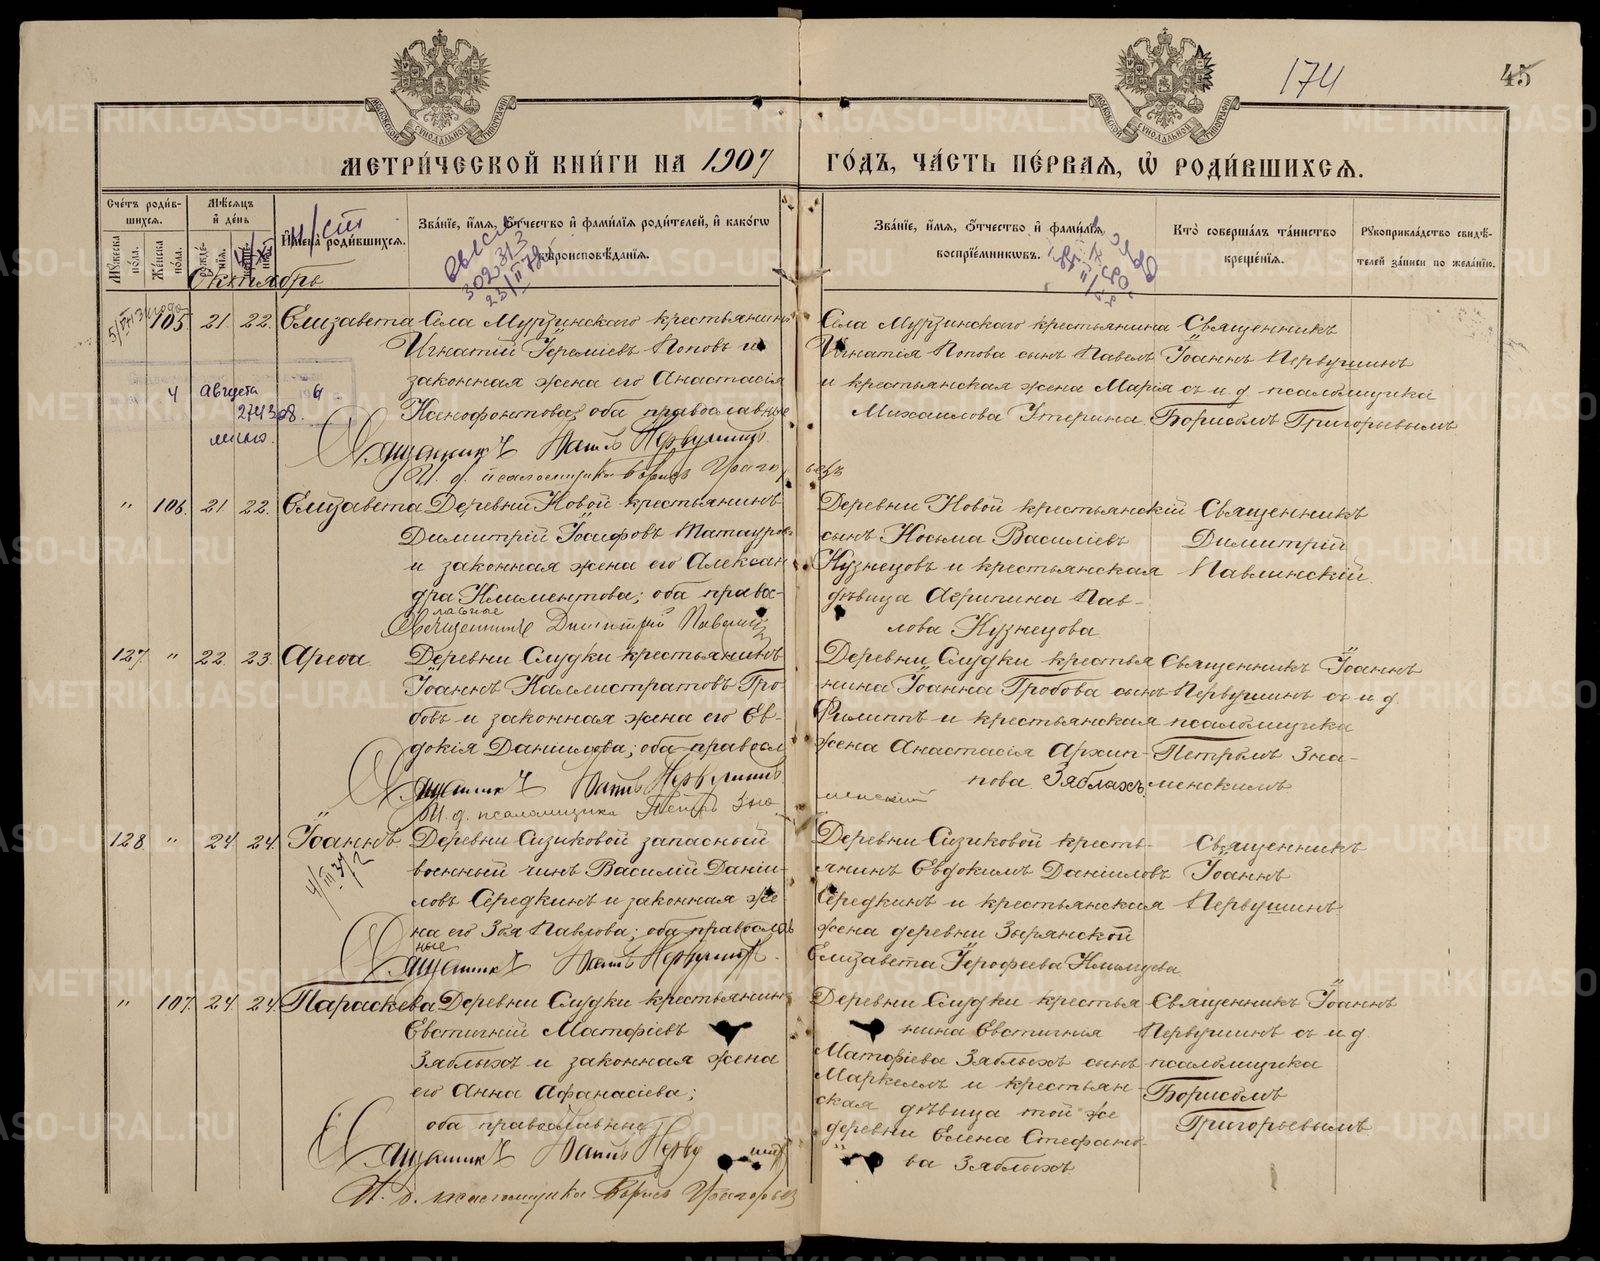 174
45
МЕТРИ́ЧЕСКОЙ КНИ́ГИ НА 1907 ГО́ДЪ, ЧА́СТЬ ПЕ́РВАЯ, Ѡ҆ РОДИ́ВШИХСЯ.
Сче́тъ роди́вшихся.
Мѣ́сяцъ и҆ де́нь
И҆мена̀ роди́вшихся.
Зва́нїе, и҆́мя, ѻ҆́тчество и҆ фами́лїя роди́телей, и҆ како́гѡ вѣроисповѣ́данїя.
Зва́нїе, и҆́мя, ѻ҆́тчество и҆ фами́лїя воспрїе́мникѡвъ.
Кто̀ соверша́лъ та́инство креще́нїя.
Рꙋкоприкла́дство свидѣ́телей за́писи по жела́нїю.
Октябрь
105 21 22. Елизавета
Села Мурзинскаго крестьянинъ
Игнатій Іереміевъ Поповъ и
законная жена его Анастасія
Ксенофонтова; оба православные
Священникъ Іоаннъ Первушинъ
И. д. псаломщика Борисъ Григорьевъ
Села Мурзинскаго крестьянина
Игнатія Попова сынъ Павелъ
и крестьянская жена Марія
Михаилова Утерина
Священникъ
Іоаннъ Первушинъ
съ и. д. псаломщика
Борисомъ Григорьевымъ
4 августа
" 106. 21 22. Елизавета
Деревни Новой крестьянинъ
Димитрій Іосифовъ Татауров
и законная жена его Алексан
дра Климентова; оба право-
славные
Священникъ Димитрій Павлинскій
Деревни Новой крестьянскій
сынъ Косьма Василіевъ
Кузнецовъ и крестьянская
дѣвица Агрипина Пав-
лова Кузнецова
Священникъ
Димитрій
Павлинскій
127. " 22. 23. Арефа.
Деревни Слудки крестьянинъ
Іоаннъ Каллистратовъ Гро-
бовъ и законная жена его Ев-
докія Даніилова; оба правосл
Священникъ Іоаннъ Первушинъ
И. д. псаломщика Петръ Зна
менскій
Деревни Слудки крестья
нина Іоанна Гробова сынъ
Филиппъ и крестьянская
жена Анастасія Архип-
пова Зяблыхъ
Священникъ Іоаннъ
Первушинъ съ и. д
псаломщика
Петромъ Зна-
менскимъ
128. " 24 24. Іоаннъ.
Деревни Сизиковой запасный
военный чинъ Василій Даніи-
ловъ Середкинъ и законная же-
на его Зоя Павлова; оба православ
ные
Священникъ Іоаннъ Первушинъ
Деревни Сизиковой кресть-
янинъ Евдокимъ Даніиловъ
Середкинъ и крестьянская
жена деревни Зырянской
Елизавета Іерофеева Климцева
Священникъ
Іоаннъ
Первушинъ
" 107. 24 24. Параскева
Деревни Слудки крестьянинъ
Евстигній Матфіевъ
Зяблыхъ и законная жена
его Анна Афанасіева;
оба православные
Священникъ Іоаннъ Первушинъ
И. д. псаломщика Борисъ Григорьев
Деревни Слудки крестья
нина Евстигнія
Матфіева Зяблыхъ сынъ
Маркеллъ и крестьян-
ская дѣвица той же
деревни Елена Стефано-
ва Зяблыхъ
Священникъ Іоаннъ
Первушинъ съ и. д
псаломщика
Борисомъ
Григорьевымъ.
METRIKI.GASO-URAL.RU